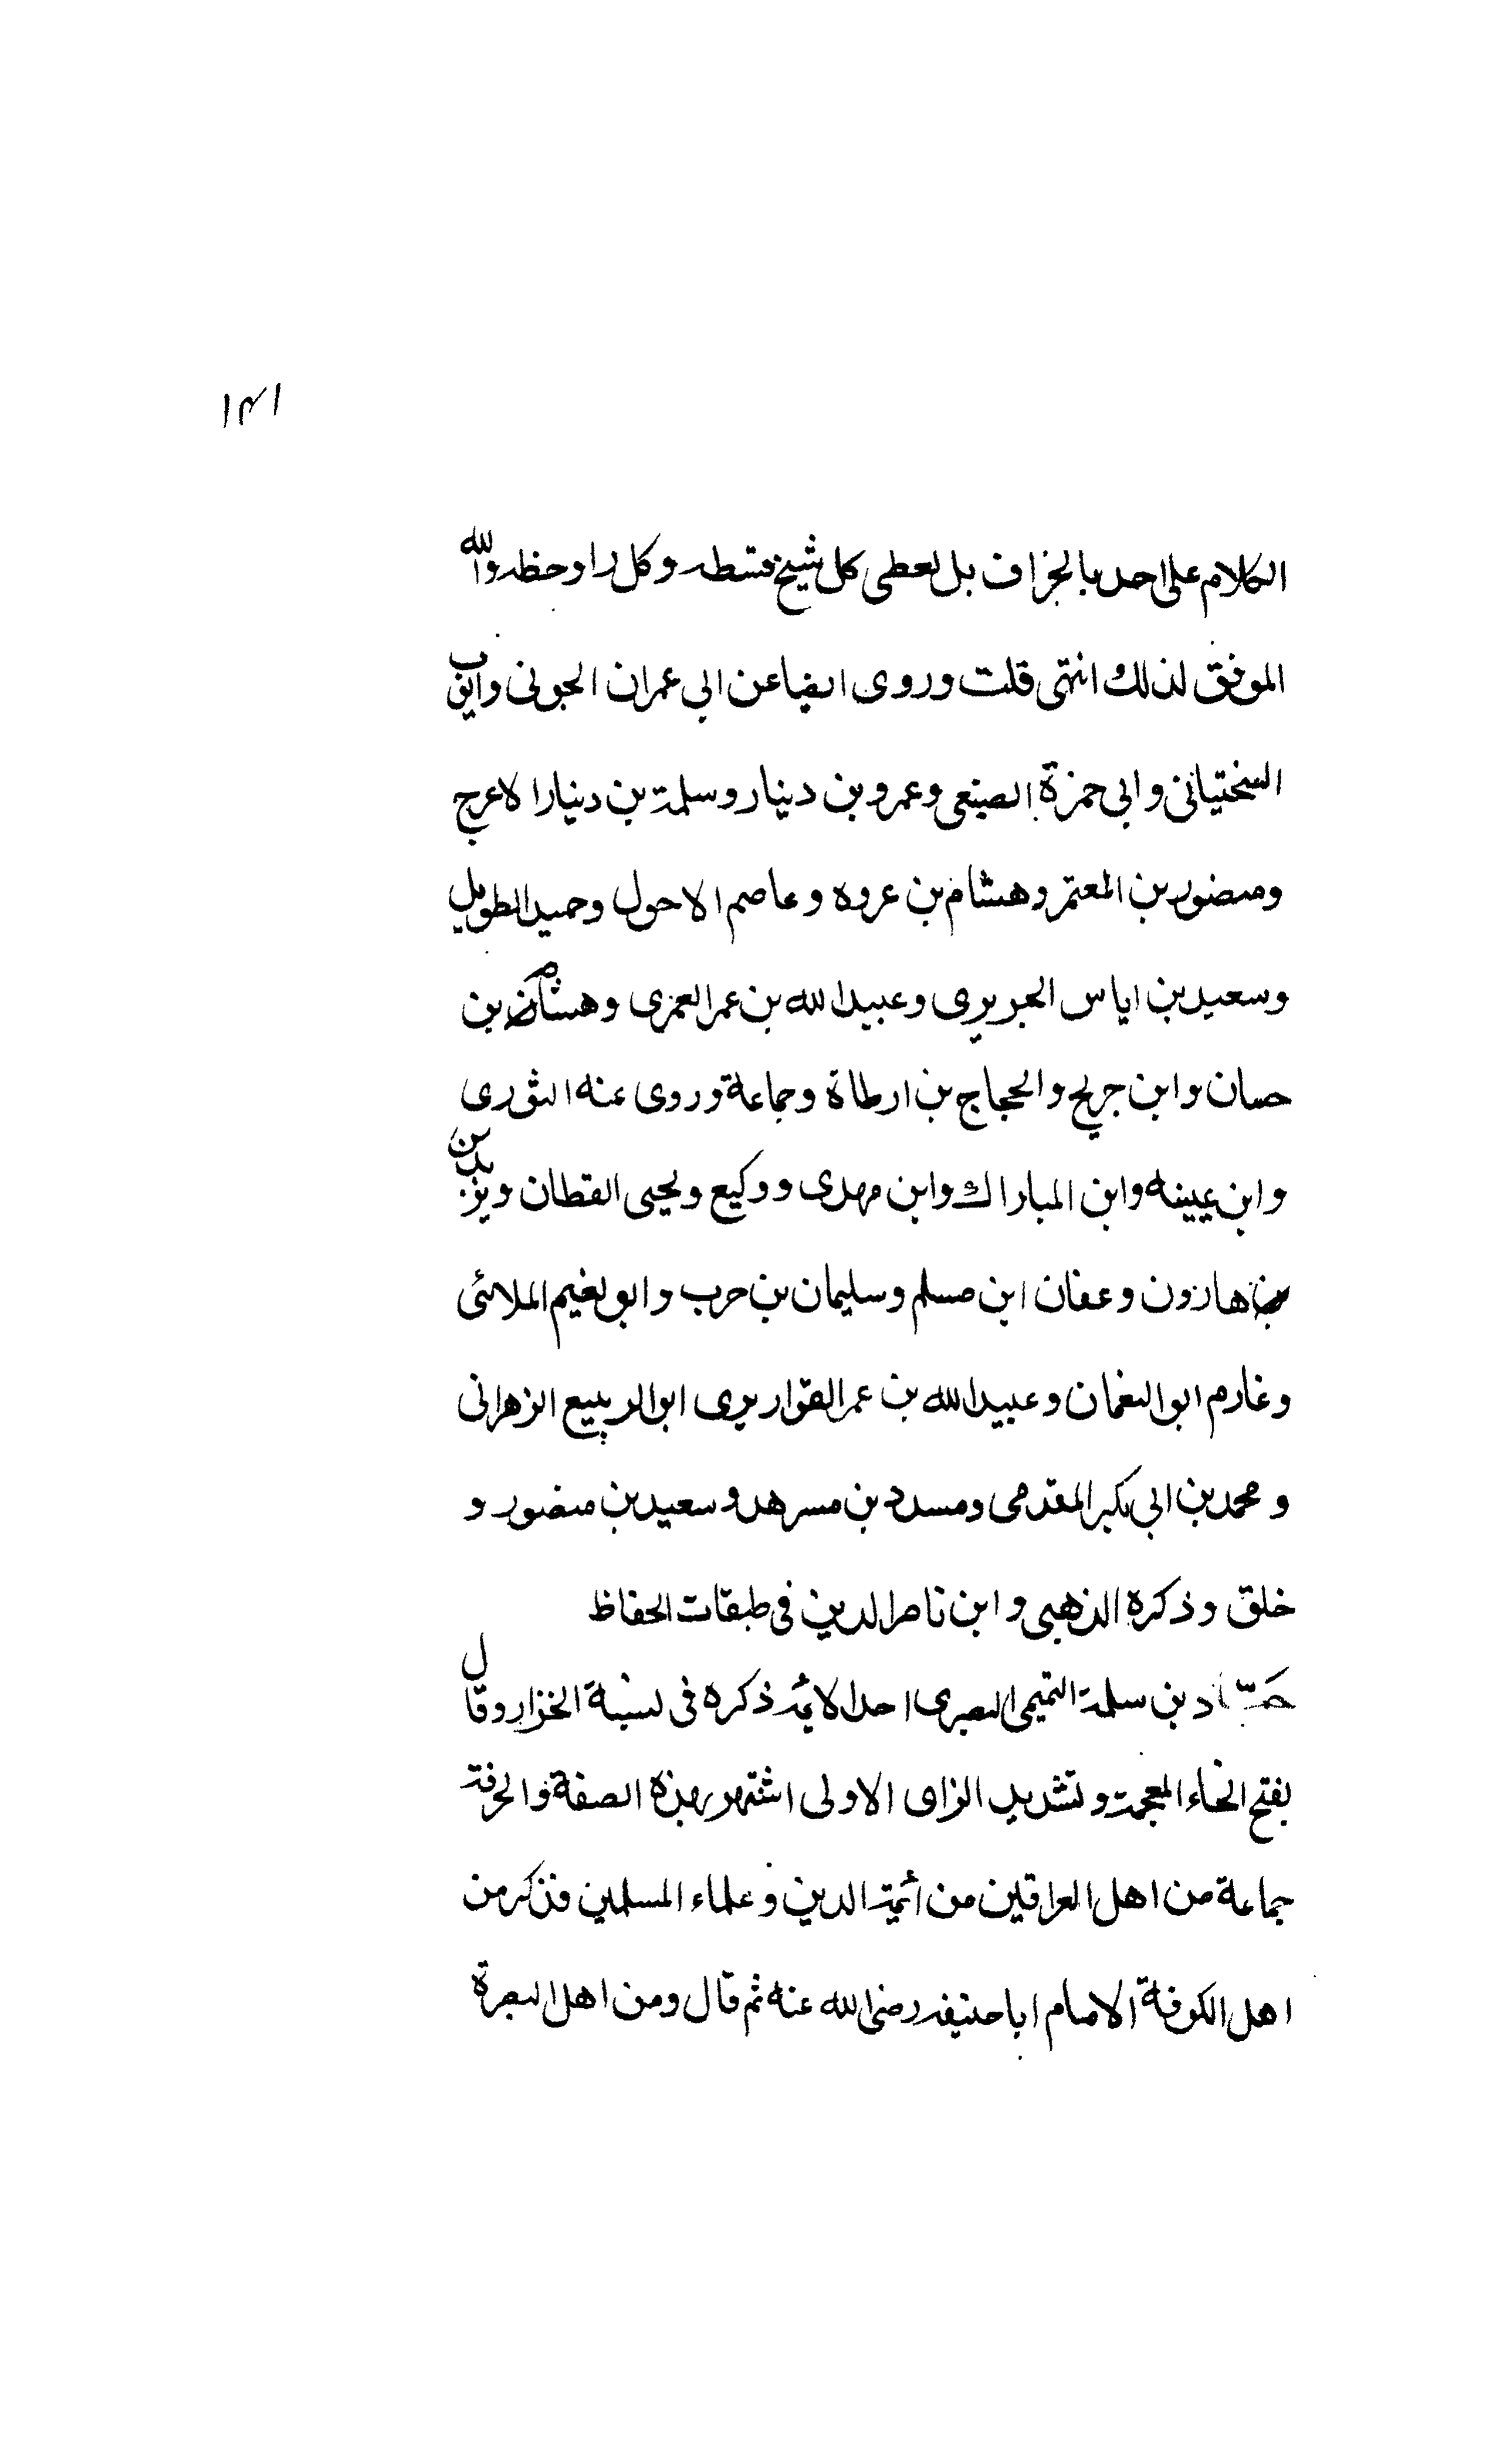 ١٣١
الكلام على احد بالجزاف بل يعطى كل شيخ قسطه وكل راو حظه والله
الموفق لذلك انتهى قلت وروى ايضا عن ابي عمران الجوني وايوب
السختياني وابي حمزة الضبعي وعمرو بن دينار وسلمة بن دينار الاعرج
ومنصور بن المعتمر وهشام بن عروه وعاصم الاحول وحميد الطويل
وسعيد بن اياس الجريري وعبيد الله بن عمر العمرى وهشام بن
حسان وابن جريج والحجاج بن ارطاة وجماعة وروى عنه الثورى
وابن عيينه وابن المبارك وابن مهدى ووكيع ويحيى القطان ويزيد بن
هارون وعفان ابن مسلم وسليمان بن حرب وابو نعيم الملائى
وعارم ابو النعمان وعبيد الله بن عمر القواريرى ابو الربيع الزهرانى
ومحمد بن ابي بكر المقدمى ومسدد بن مسرهد وسعيد بن منصور و
خلق وذكره الذهبي وابن ناصر الدين في طبقات الحفاظ
حماد بن سلمة التميمى البصرى احد الائمه ذكره فى نسبة الخزاز وقال
بفتح الخاء المعجمة وتشديد الزاى الاولى اشتهر بهذه الصفة والحرفة
جماعة من اهل العراقين من أئمة الدين وعلماء المسلمين فذكر من
اهل الكوفة الامام ابا حنيفه رضى الله عنه ثم قال ومن اهل البصرة